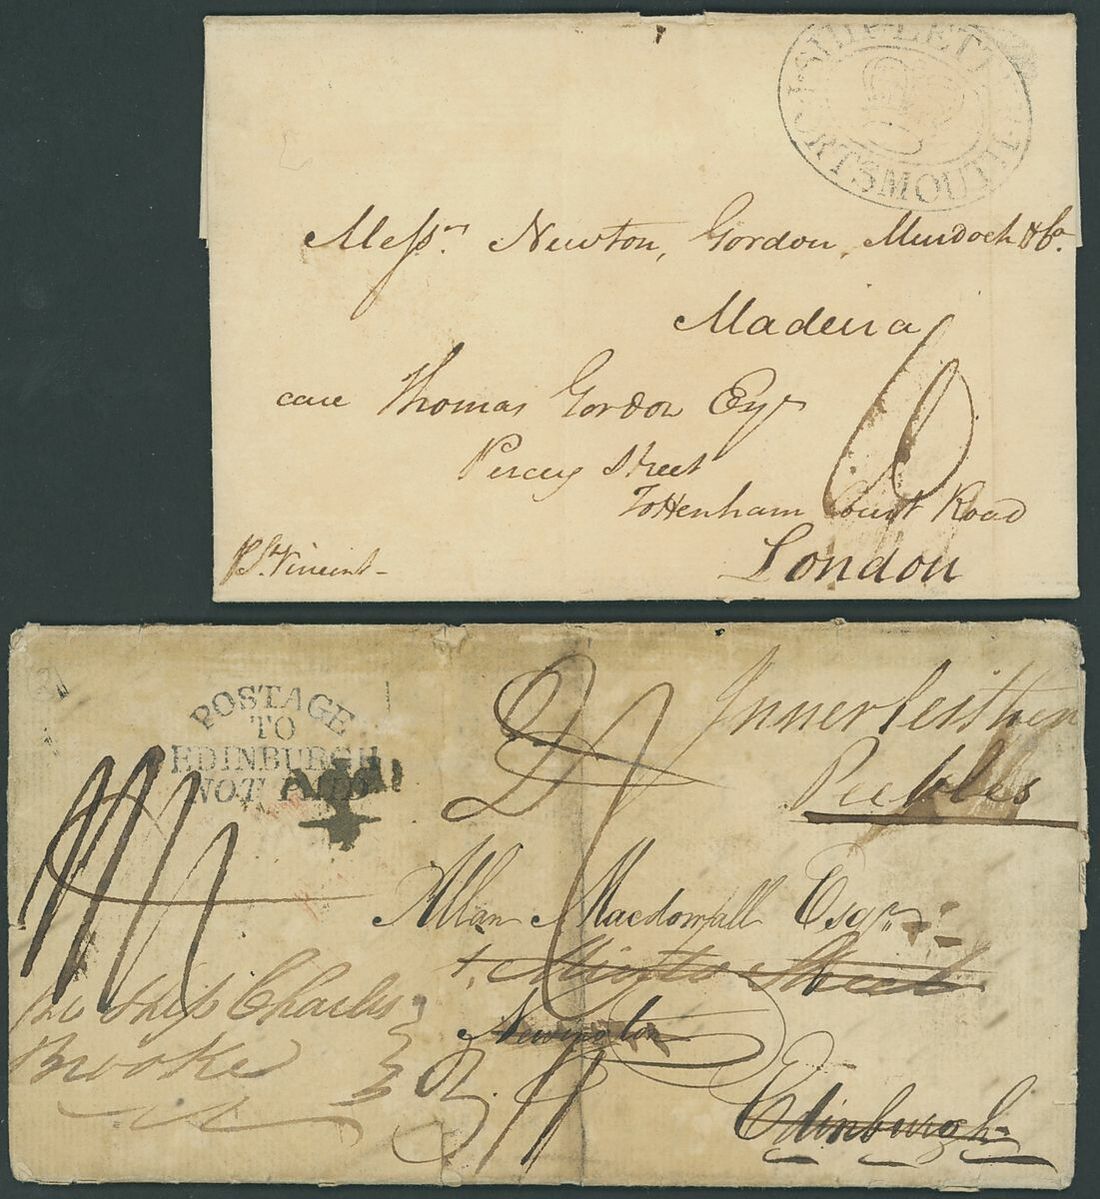 SHIP-LETTER
PORTSMOUTH
Messrs. Newton, Gordon, Murdoch & Co.
Madeira
care Thomas Gordon Esqr
Percey Street
Tottenham Court Road
London
6
pr. St. Vincent
POSTAGE
TO
EDINBURGH
NOT PAID
Innerleithen
Peebles
Allan Macdowall Esqr.
Minto Street
Newington
Edinburgh
Ship Charles
Brooke